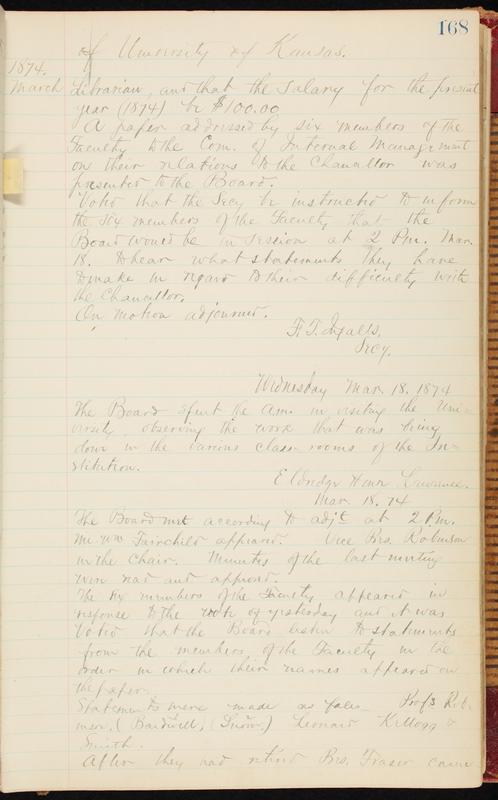 168
of University of Kansas.
1874.
March
Librarian, and that the Salary for the present
year (1874) be $100.00
A paper addressed by six members of the
Faculty to the Com. of Internal Management
on their relations to the Chancellor was
presented to the Board.
Voted that the Secy be instructed to inform
the six members of the Faculty that the
Board would be in Session at 2 P.m. Mar.
18. to hear what statements they have
to make in regard to their difficulty with
the Chancellor.
On motion adjourned.
F. T. Ingalls,
Secy.
Wednesday Mar. 18, 1874
The Board spent the Am. in visiting the Uni-
versity observing the work that was being
done in the various class-rooms of the In-
stitution.
Eldridge House Lawrence.
Mar. 18. 74
The Board met according to adjt. at 2 P.m.
Mr. Wm Fairchild appeared. Vice Pres. Robinson
in the Chair. Minutes of the last meeting
were read and approved.
The six members of the Faculty appeared in
response to the vote of yesterday and it was
Voted that the Board listen to statements
from the members of the Faculty in the
order in which their names appeared on
the paper.
Statements were made as follows Profs Rob-
inson, (Bardwell, Snow.) Leonard Kellogg &
Smith.
After they had retired Pres. Fraser came